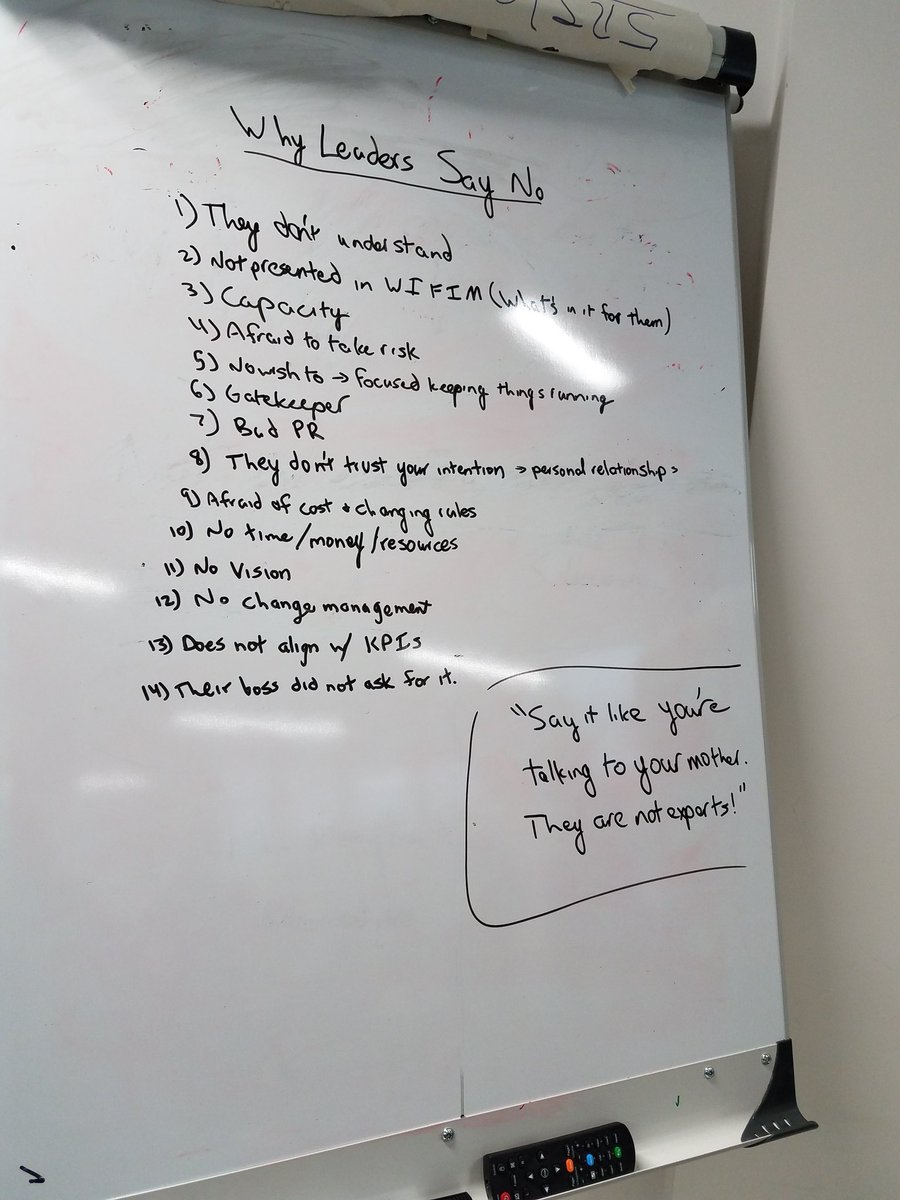 Why Leaders Say No
1) They don't understand
2) Not presented in WIFIM (What's in it for them)
3) Capacity
4) Afraid to take risk
5) No wish to → focused keeping things running
6) Gatekeeper
7) Bad PR
8) They don't trust your intention → personal relationship >
9) Afraid of cost + changing rules
10) No time/money/resources
11) No Vision
12) No change management
13) Does not align w/ KPIs
14) Their boss did not ask for it.
"Say it like you're
talking to your mother.
They are not experts!"